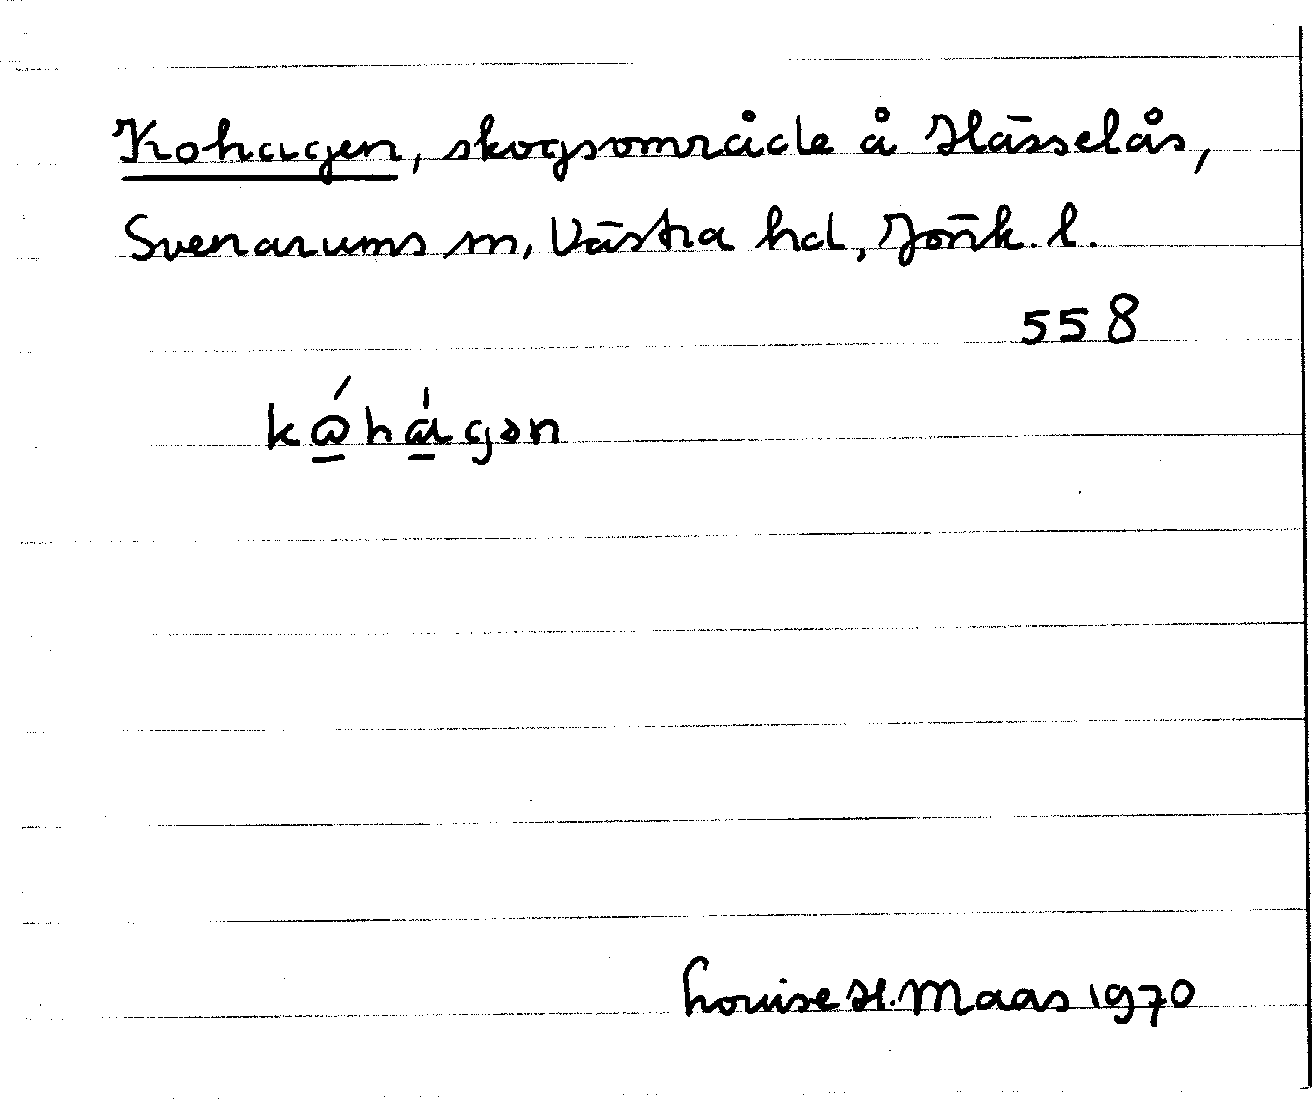 Kohagen, skogsområde å Hässelås,
Svenarums sn, Västra hd, Jönk. l.
558
kώ̲hα̲̍gən
Louise H. Maas 1970